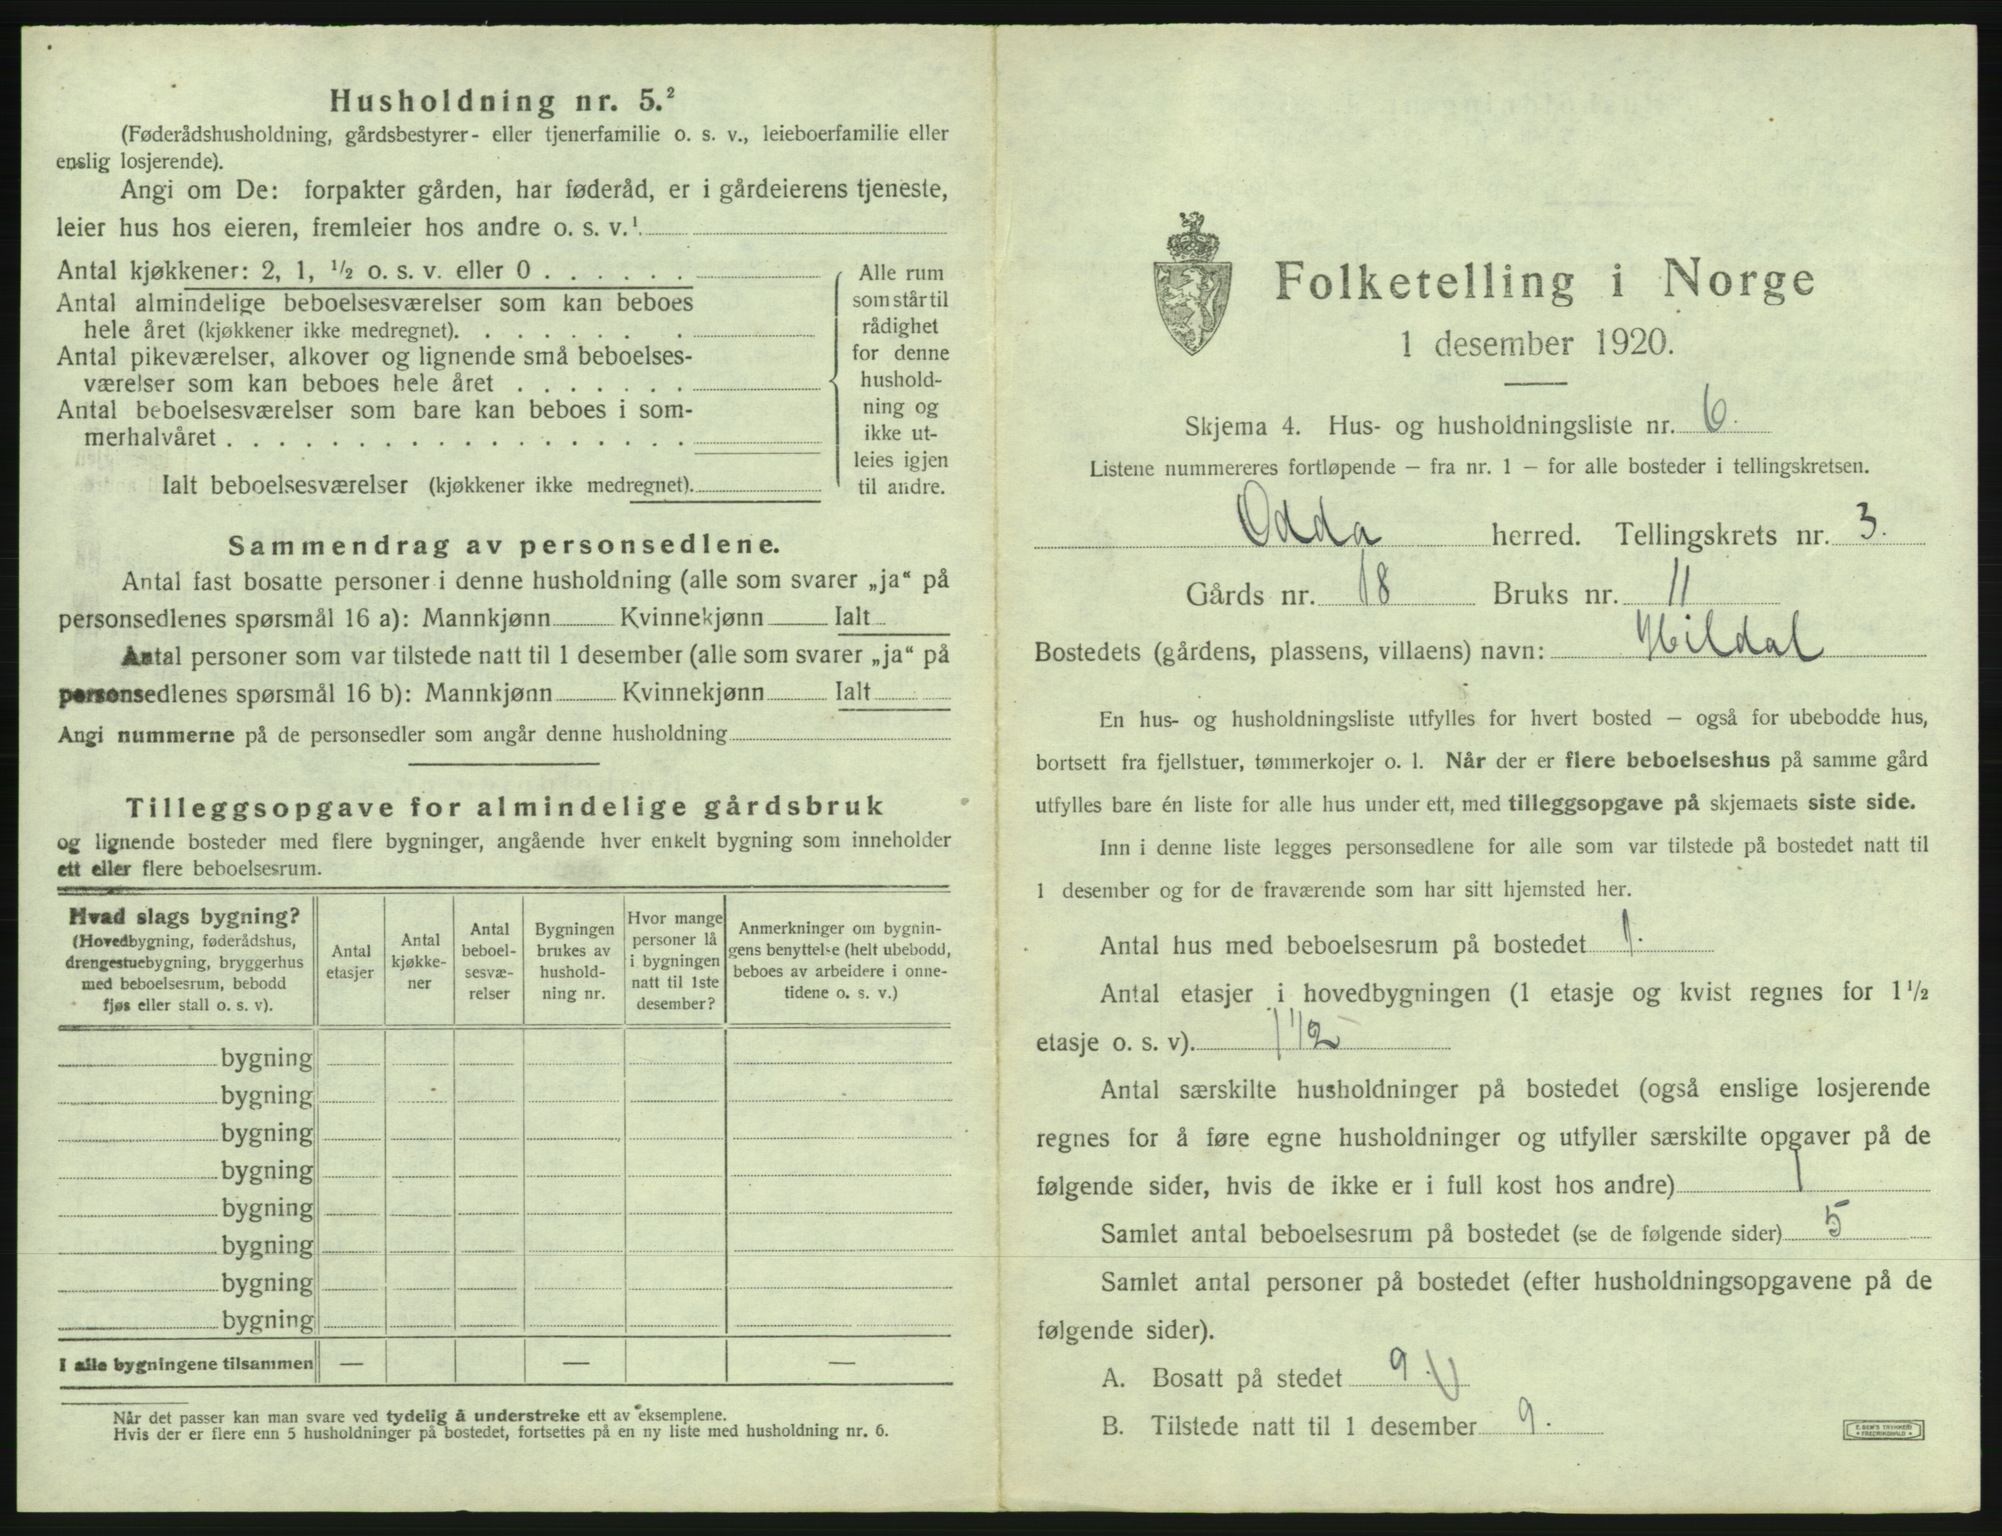 Husholdning nr. 5.²
(Føderådshusholdning, gårdsbestyrer- eller tjenerfamilie o. s. v., leieboerfamilie eller
enslig losjerende).
Angi om De: forpakter gården, har føderåd, er i gårdeierens tjeneste,
leier hus hos eieren, fremleier hos andre o. s. v.¹
Antal kjøkkener: 2, 1, ½ o. s. v. eller 0 . . . . . .
Antal almindelige beboelsesværelser som kan beboes
hele året (kjøkkener ikke medregnet). . . . . . . .
Antal pikeværelser, alkover og lignende små beboelses-
værelser som kan beboes hele året . . . . . . .
Antal beboelsesværelser som bare kan beboes i som-
merhalvåret . . . . . . . . . . . . . . . . . .
Ialt beboelsesværelser (kjøkkener ikke medregnet).
Alle rum
som står til
rådighet
for denne
hushold-
ning og
ikke ut-
leies igjen
til andre.
Sammendrag av personsedlene.
Antal fast bosatte personer i denne husholdning (alle som svarer „ja“ på
personsedlenes spørsmål 16 a): Mannkjønn Kvinnekjønn Ialt
Antal personer som var tilstede natt til 1 desember (alle som svarer „ja“ på
personsedlenes spørsmål 16 b): Mannkjønn Kvinnekjønn Ialt
Angi nummerne på de personsedler som angår denne husholdning
Tilleggsopgave for almindelige gårdsbruk
og lignende bosteder med flere bygninger, angående hver enkelt bygning som inneholder
ett eller flere beboelsesrum.
Hvad slags bygning?
(Hovedbygning, føderådshus,
drengestuebygning, bryggerhus
med beboelsesrum, bebodd
fjøs eller stall o. s. v).
Antal
etasjer
Antal
kjøkke-
ner
Antal
beboel-
sesvæ-
relser
Bygningen
brukes av
hushold-
ning nr.
Hvor mange
personer lå
i bygningen
natt til 1ste
desember?
Anmerkninger om bygnin-
gens benyttelse (helt ubebodd,
beboes av arbeidere i onne-
tidene o. s. v.)
bygning
bygning
bygning
bygning
bygning
bygning
bygning
bygning
I alle bygningene tilsammen — — —
Når det passer kan man svare ved tydelig å understreke ett av eksemplene.
Hvis der er flere enn 5 husholdninger på bostedet, fortsettes på en ny liste med husholdning nr. 6.
Folketelling i Norge
1 desember 1920.
Skjema 4. Hus- og husholdningsliste nr. 6.
Listene nummereres fortløpende – fra nr. 1 – for alle bosteder i tellingskretsen.
Odda herred. Tellingskrets nr. 3.
Gårds nr. 18 Bruks nr. 11
Bostedets (gårdens, plassens, villaens) navn: Hildal
En hus- og husholdningsliste utfylles for hvert bosted – også for ubebodde hus,
bortsett fra fjellstuer, tømmerkojer o. l. Når der er flere beboelseshus på samme gård
utfylles bare én liste for alle hus under ett, med tilleggsopgave på skjemaets siste side.
Inn i denne liste legges personsedlene for alle som var tilstede på bostedet natt til
1 desember og for de fraværende som har sitt hjemsted her.
Antal hus med beboelsesrum på bostedet 1.
Antal etasjer i hovedbygningen (1 etasje og kvist regnes for 1½
etasje o. s. v). 1 1/2
Antal særskilte husholdninger på bostedet (også enslige losjerende
regnes for å føre egne husholdninger og utfyller særskilte opgaver på de
følgende sider, hvis de ikke er i full kost hos andre) 1
Samlet antal beboelsesrum på bostedet (se de følgende sider) 5
Samlet antal personer på bostedet (efter husholdningsopgavene på de
følgende sider).
A. Bosatt på stedet 9.
B. Tilstede natt til 1 desember 9.